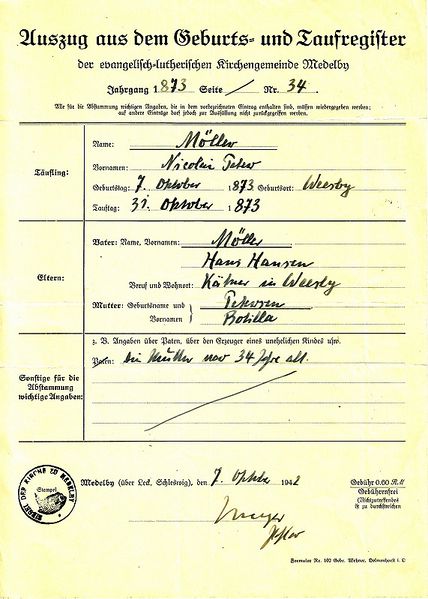 Auszug aus dem Geburts- und Taufregister
der evangelisch-lutherischen Kirchengemeinde Medelby
Jahrgang 1873 Seite / Nr. 34.
Alle für die Abstammung wichtigen Angaben, die in dem vorbezeichneten Eintrag enthalten sind, müssen wiedergegeben werden;
auf andere Einträge darf jedoch zur Ausfüllung nicht zurückgegriffen werden.
Täufling:
Name: Möller
Vornamen: Nicolai Peter
Geburtstag: 7. Oktober 1873 Geburtsort: Weesby
Tauftag: 31. Oktober 1873
Eltern:
Vater: Name, Vornamen: Möller
Hans Hansen
Beruf und Wohnort: Kätner in Weesby
Mutter: Geburtsname und Petersen
Vornamen Botilla
Sonstige für die
Abstammung
wichtige Angaben:
z. B. Angaben über Paten, über den Erzeuger eines unehelichen Kindes usw.
Paten: die Mutter war 34 Jahre alt.
SIEGEL DER KIRCHE ZU MEDELBY
Stempel
Medelby (über Leck, Schleswig), den 7. Oktbr 1942
Gebühr 0.60 R.M
Gebührenfrei
(Nichtzutreffendes
ist zu durchstreichen)
Pastor
Formular Nr. 102 Gebr.